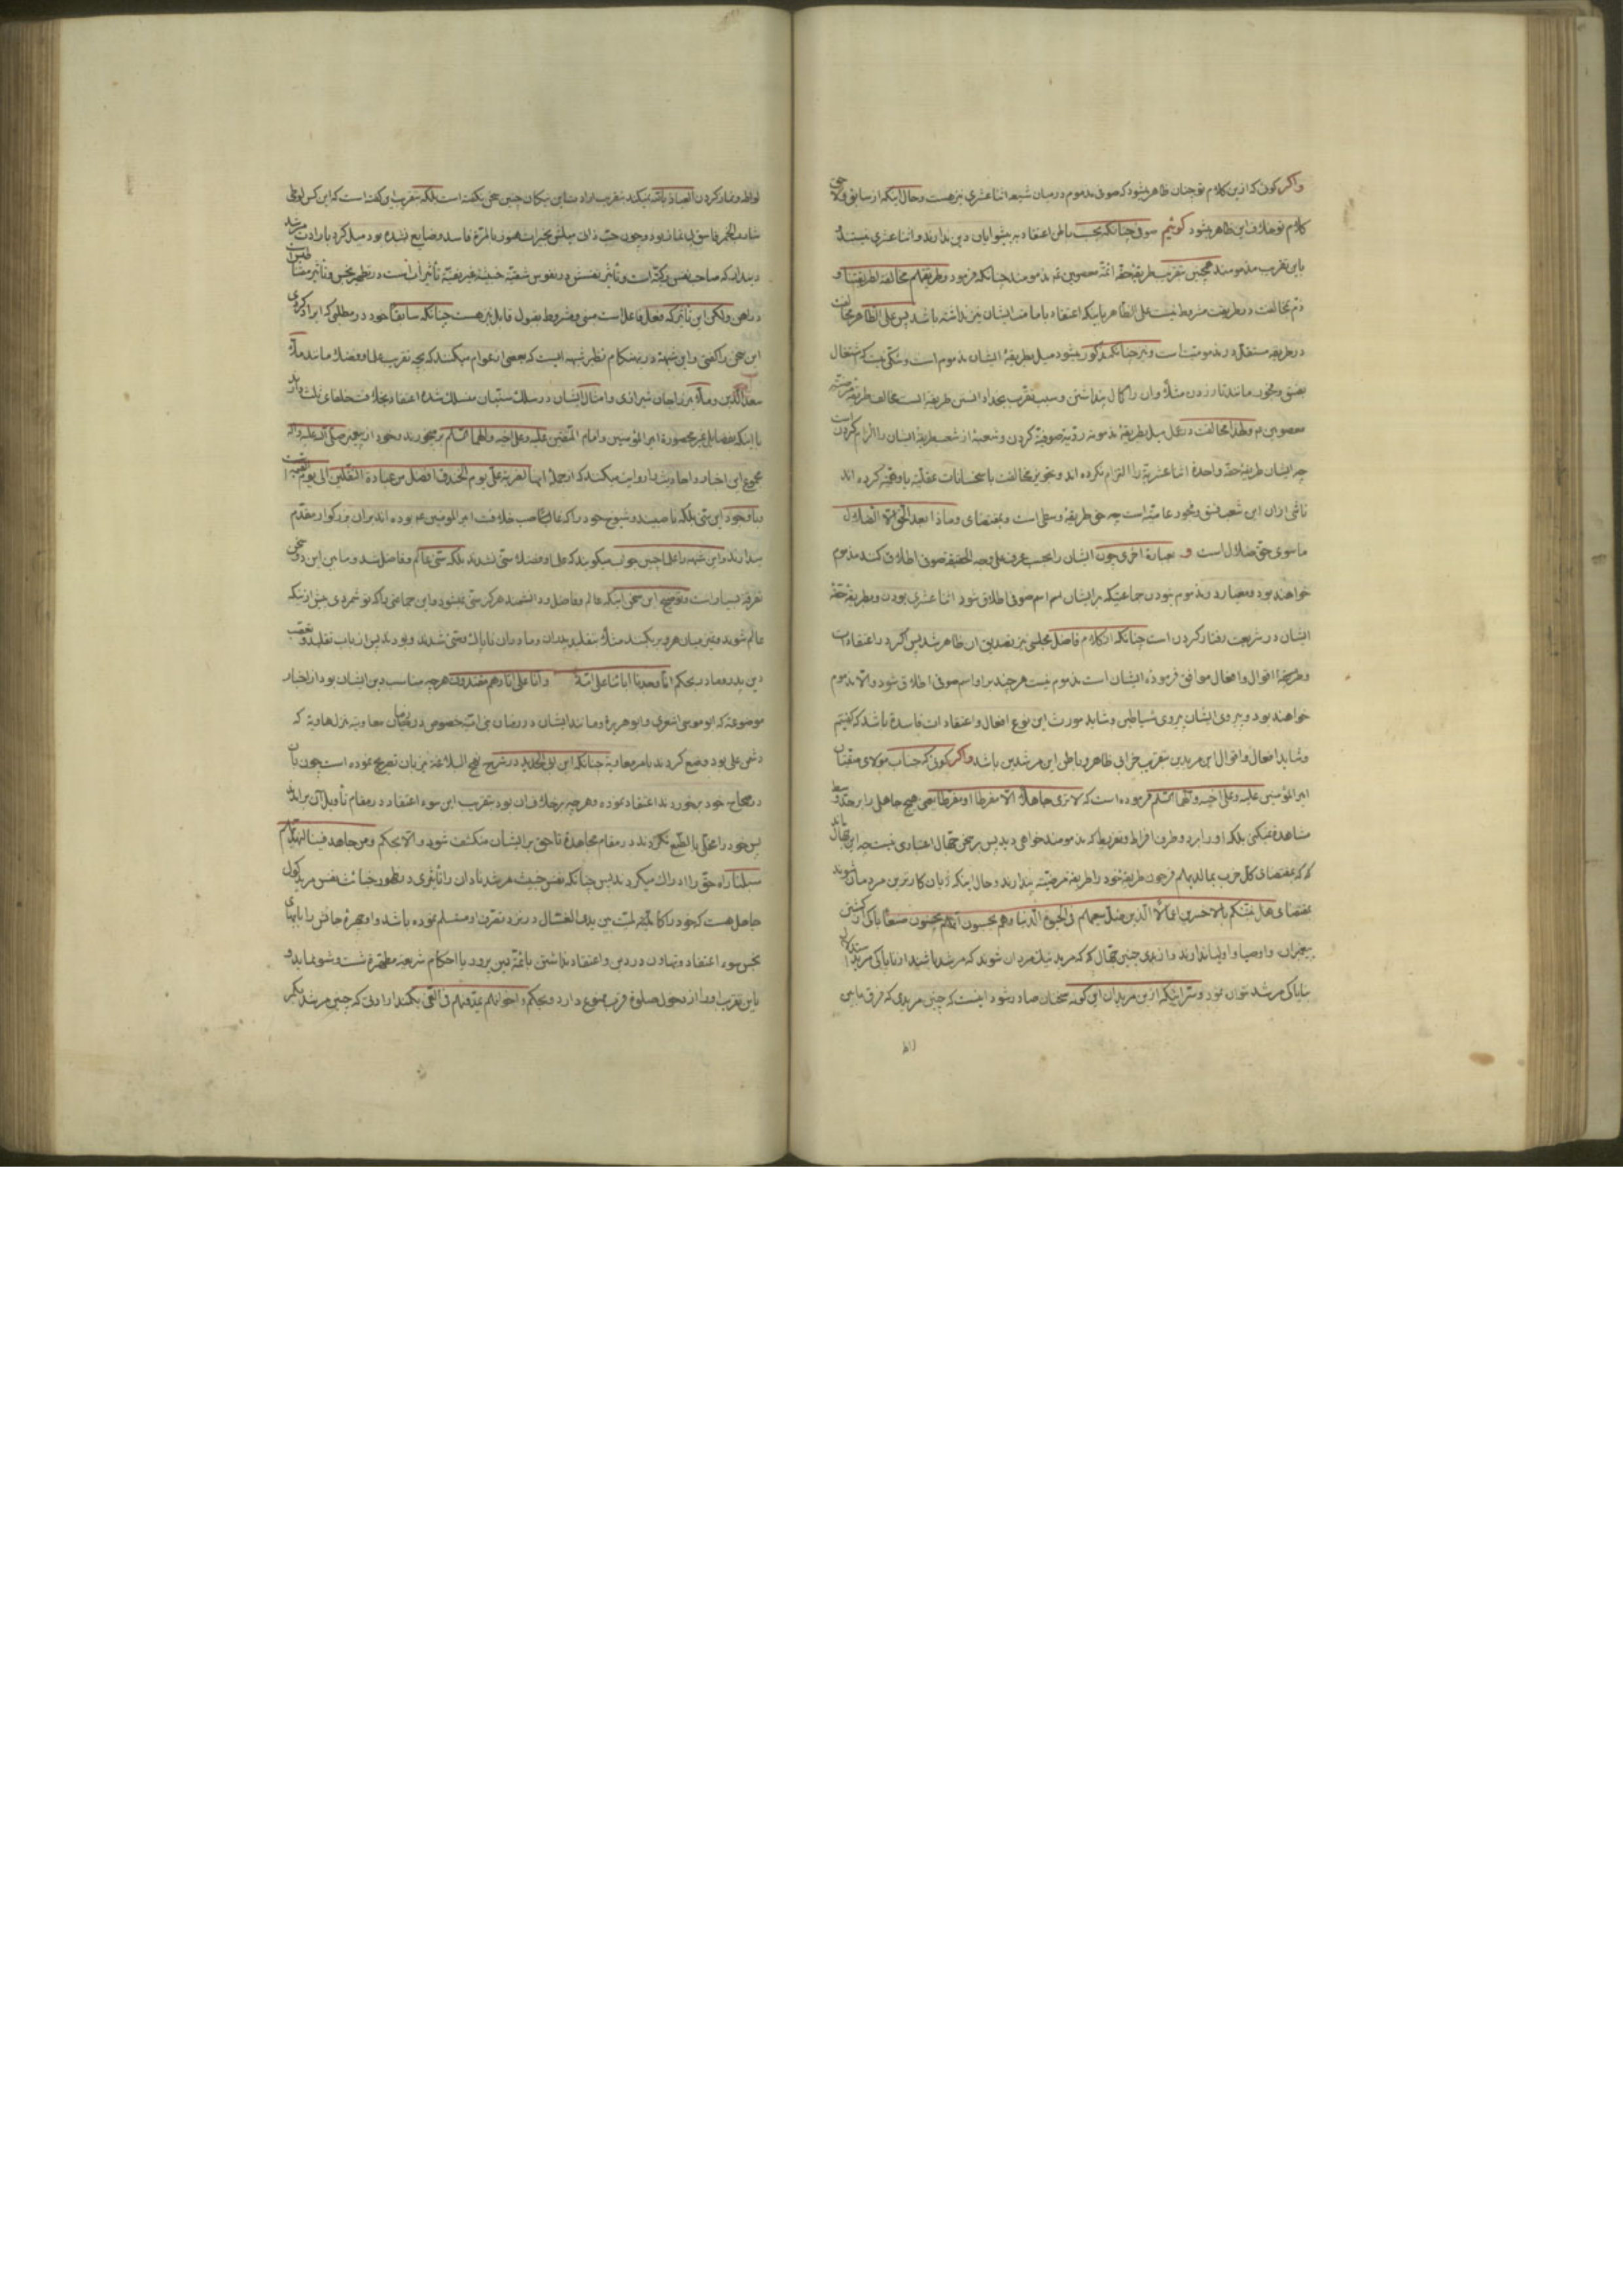 واکر کوئی که ازین کلام تو چنان ظاهر میشود که صوفی مذموم در میان شیعه اثنا عشری نیز هست و حال اینکه از سابق
کلام تو خلاف این ظاهر میشود کوئیم صوفی چنانکه بحسب باطن اعتقاد به پیشوایان دین ندارند و اثنا عشری نیستند
باین تقریب مذمومند همچنین بتقریب طریقهٔ حقه ائمهٔ معصومین نیز مذمومند چنانکه فرمود و طریقتهم مخالفة لطریقتنا و
ذم مخالفت در طریقت مشروط نیست علی الظاهر باینکه اعتقاد بامامت ایشان نیز نداشته باشد پس علی الظاهر مخالفت
در طریقه مستقل در مذمومیت است و نیز چنانکه مذکور میشود میل بطریقهٔ ایشان مذموم است و شکی نیست که اشتغال
بفسق و فجور مانند تار زدن مثلا و ان را کمال پنداشتن و سبب تقرب بخدا دانستن طریقه ایست مخالف طریقهٔ مرضیه
معصومین و لهذا مخالفت در عمل میل بطریقهٔ مذمومه ردیهٔ صوفیه کردن و شعبهٔ از شعب طریقهٔ ایشان را الزام کردن است
چه ایشان طریقهٔ حقه واحدهٔ اثنا عشریة را التزام نکرده اند و تجویز مخالفت باستحسانات عقلیه یا وهمیه کرده اند
ناشی ازان این شعب فسق و فجور عامیه است چه حق طریقهٔ وسطی است و بمقتضای وماذا بعد الحق الا الضلال
ماسوی حق ضلال است و بعبارة اخری چون ایشان را بحسب عرف علی وجه الحقیقه صوفی اطلاق کنند مذموم
خواهند بود و معیار در مذموم بودن جماعتیکه برایشان اسم صوفی اطلاق شود اثنا عشری بودن و بطریقهٔ حقهٔ
ایشان در شریعت رفتار کردن است چنانکه از کلام فاضل مجلسی نیز تصدیق ان ظاهر شد پس اکر در اعتقادات
و طریقه اقوال و افعال موافق فرمودهٔ ایشان است مذموم نیست هر چند بر او اسم صوفی اطلاق شود و الا مذموم
خواهند بود و پیروی ایشان پیروی شیاطین و شاید مورث این نوع افعال و اعتقادات فاسدة باشد که کفتیم
و شاید افعال و اقوال این مریدین بتقریب خرابی ظاهر و باطن این مرشدین باشد واکر کوئی که جناب مولای متقیان
امیر المؤمنین علیه و علی اخیه و الهما السلم فرموده است که لا تری جاهلا الا مفرطا او مفرطا یعنی هیچ جاهلی را بر حد وسط
مشاهدة نمیکنی بلکه او را بر دو طرف افراط و تفریط که مذمومند خواهی دید پس بر سخن جهال اعتباری نیست چه این جهال
که بمقتضای کل حزب بما لدیهم فرحون طریقهٔ خود را طریقهٔ مرضیه پندارند و حال اینکه زیان کارترین مردمان شوند
بمقتضای هل ننبئکم بالاخسرین اعمالا الذین ضل سعیهم فی الحیوة الدنیا و هم یحسبون انهم یحسنون صنعا پاکی از
پیغمبران و اوصیا و اولیا ندارند و ازیدی چنین جهال که مرید نیک مردان شوند که مرشد باشند از ناپاکی مرید
بناپاکی مرشد نتوان نمود و سر اینکه ازین مریدان این کونه سخنان صادر شود اینست که چنین مریدی که فرق مابین
لواط
لواط و نماز کردن العیاذ بالله نمیکند بتقریب اراد بنا این نیکان چنین سخن نکفته است بلکه بتقریب این کفته است که این کس لوطی
شارب الخمر فاسق بی نماز بود و چون حب ذاتی میلش بخیرات هنوز بالمرة فاسد و ضایع نشده بود میل کرد بارادت مرشد
دیندار که صاحب نفس زکیه است و تأثیر نفسش در نفوس شقیه خبیثه غیر نقیه تأثیر آن است در تطهیر نجس و تأثیر مغناطیس است
در آهن ولکن این تأثیر که فعل فاعل است مبنی و مشروط بقبول قابل نیز هست چنانکه سابقا خود در مطلبی که ایراد کردی
این سخن را کفتی و این شبهه در بهنکام نظیر شبهه ایست که بعضی از عوام میکنند که بچه تقریب علما و فضلا مانند ملا
سعد الدین و ملا میرزاجان شیرازی و امثال ایشان در سلک سنیان منسلک شده اعتقاد بخلافت خلفای ثلث دارند
با اینکه بفضایل غیر محصورة امیر المؤمنین و امام المتقین علیه و علی اخیه و الهما السلم بر میخورند و خود از پیغمبر صلی الله علیه و اله
مجموع این اخبار و احادیث را روایت میکنند که از جملهٔ اینها لضربة علی یوم الخندق افضل من عبادة الثقلین الی یوم القیمة است
و با وجود این سنی بلکه ناصبیند و شیوخ خود را که غاصب خلافت امیر المومنین عم بوده اند بران بزرکوار مقدم
میدارند و این شبهه را علما چنین جواب میکویند که علما و فضلا سنی نشدند بلکه سنی عالم و فاضل شد و مابین این دو سخن
تفرقهٔ بسیار است و توضیح این سخن اینکه عالم و فاضل و دانشمند هرکز سنی نمیشود و این جماعتی را که تو شمردی پیش از اینکه
عالم شوند و تمیز میان هر و بر بکنند مثلا بتقلید پدران و مادران ناپاک سنی شدند و بودند پس از باب تقلید و تعصب
دین پدر و مادر بحکم انا وجدنا اباءنا علی امة و انا علی اثارهم مقتدون هر چه مناسب دین ایشان بود از اخبار
موضوعه که ابو موسی اشعری و ابو هریرة و مانند ایشان در زمان بنی امیه خصوص در زمان معاویه منزلهاویة که
دشمن علی بود وضع کردند بامر معاویه چنانکه ابن ابی الحدید در شرح نهج البلاغه نیز بان تصریح نموده است چون بان
در صحاح خود برخوردند اعتقاد نموده و هر چه بر خلاف ان بود بتقریب این سوء اعتقاد در مقام تأویل آن برآمدند
پس خود را مخلی بالطبع نکردند در مقام مجاهدة تا حق برایشان منکشف شود و الا بحکم و من جاهد فینا لنهدینهم
سبلنا راه حق را ادراک میکردند پس چنانکه نفس خبیث مرشد نادان را تأثیری در ظهور خباثت نفس مرید کول
جاهل هست که خود را کالمیت بین یدی الغسال در نزد تقریر او مسلم نموده باشد و او چهرهٔ حالش را بابهای
نجس سوء اعتقاد و تهاون در دین و اعتقاد نداشتن بائمهٔ دین برود بااحکام شریعهٔ مطهرة شست و شو نماید و
باین تقریب او را از دخول صلوة قرب ممنوع دارد و بحکم و اخوانهم یمدونهم فی الغی بکند ارادتی که چنین مرشد بکیر